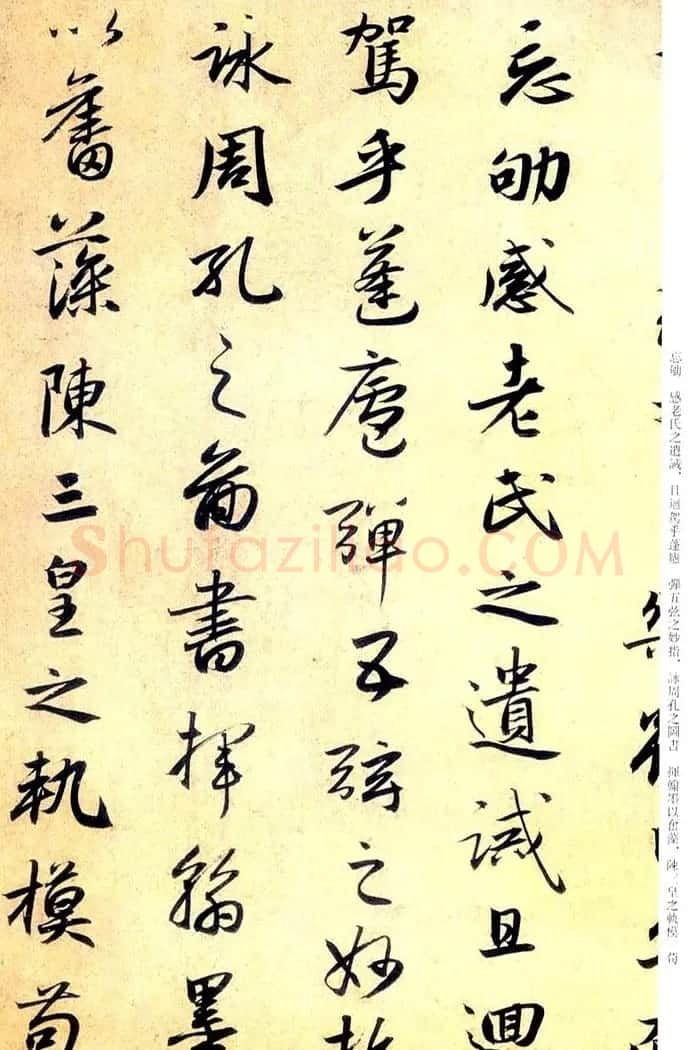 忘劬感老氏之遺誡且迴
駕乎蓬廬彈五弦之妙指
詠周孔之圖書揮翰墨
以奮藻陳三皇之軌模苟
忘劬 感老氏之遺誡、且迴駕乎蓬廬 彈五弦之妙指、詠周孔之圖書 揮翰墨以奮藻、陳三皇之軌模 苟
Shufaziliao.COM